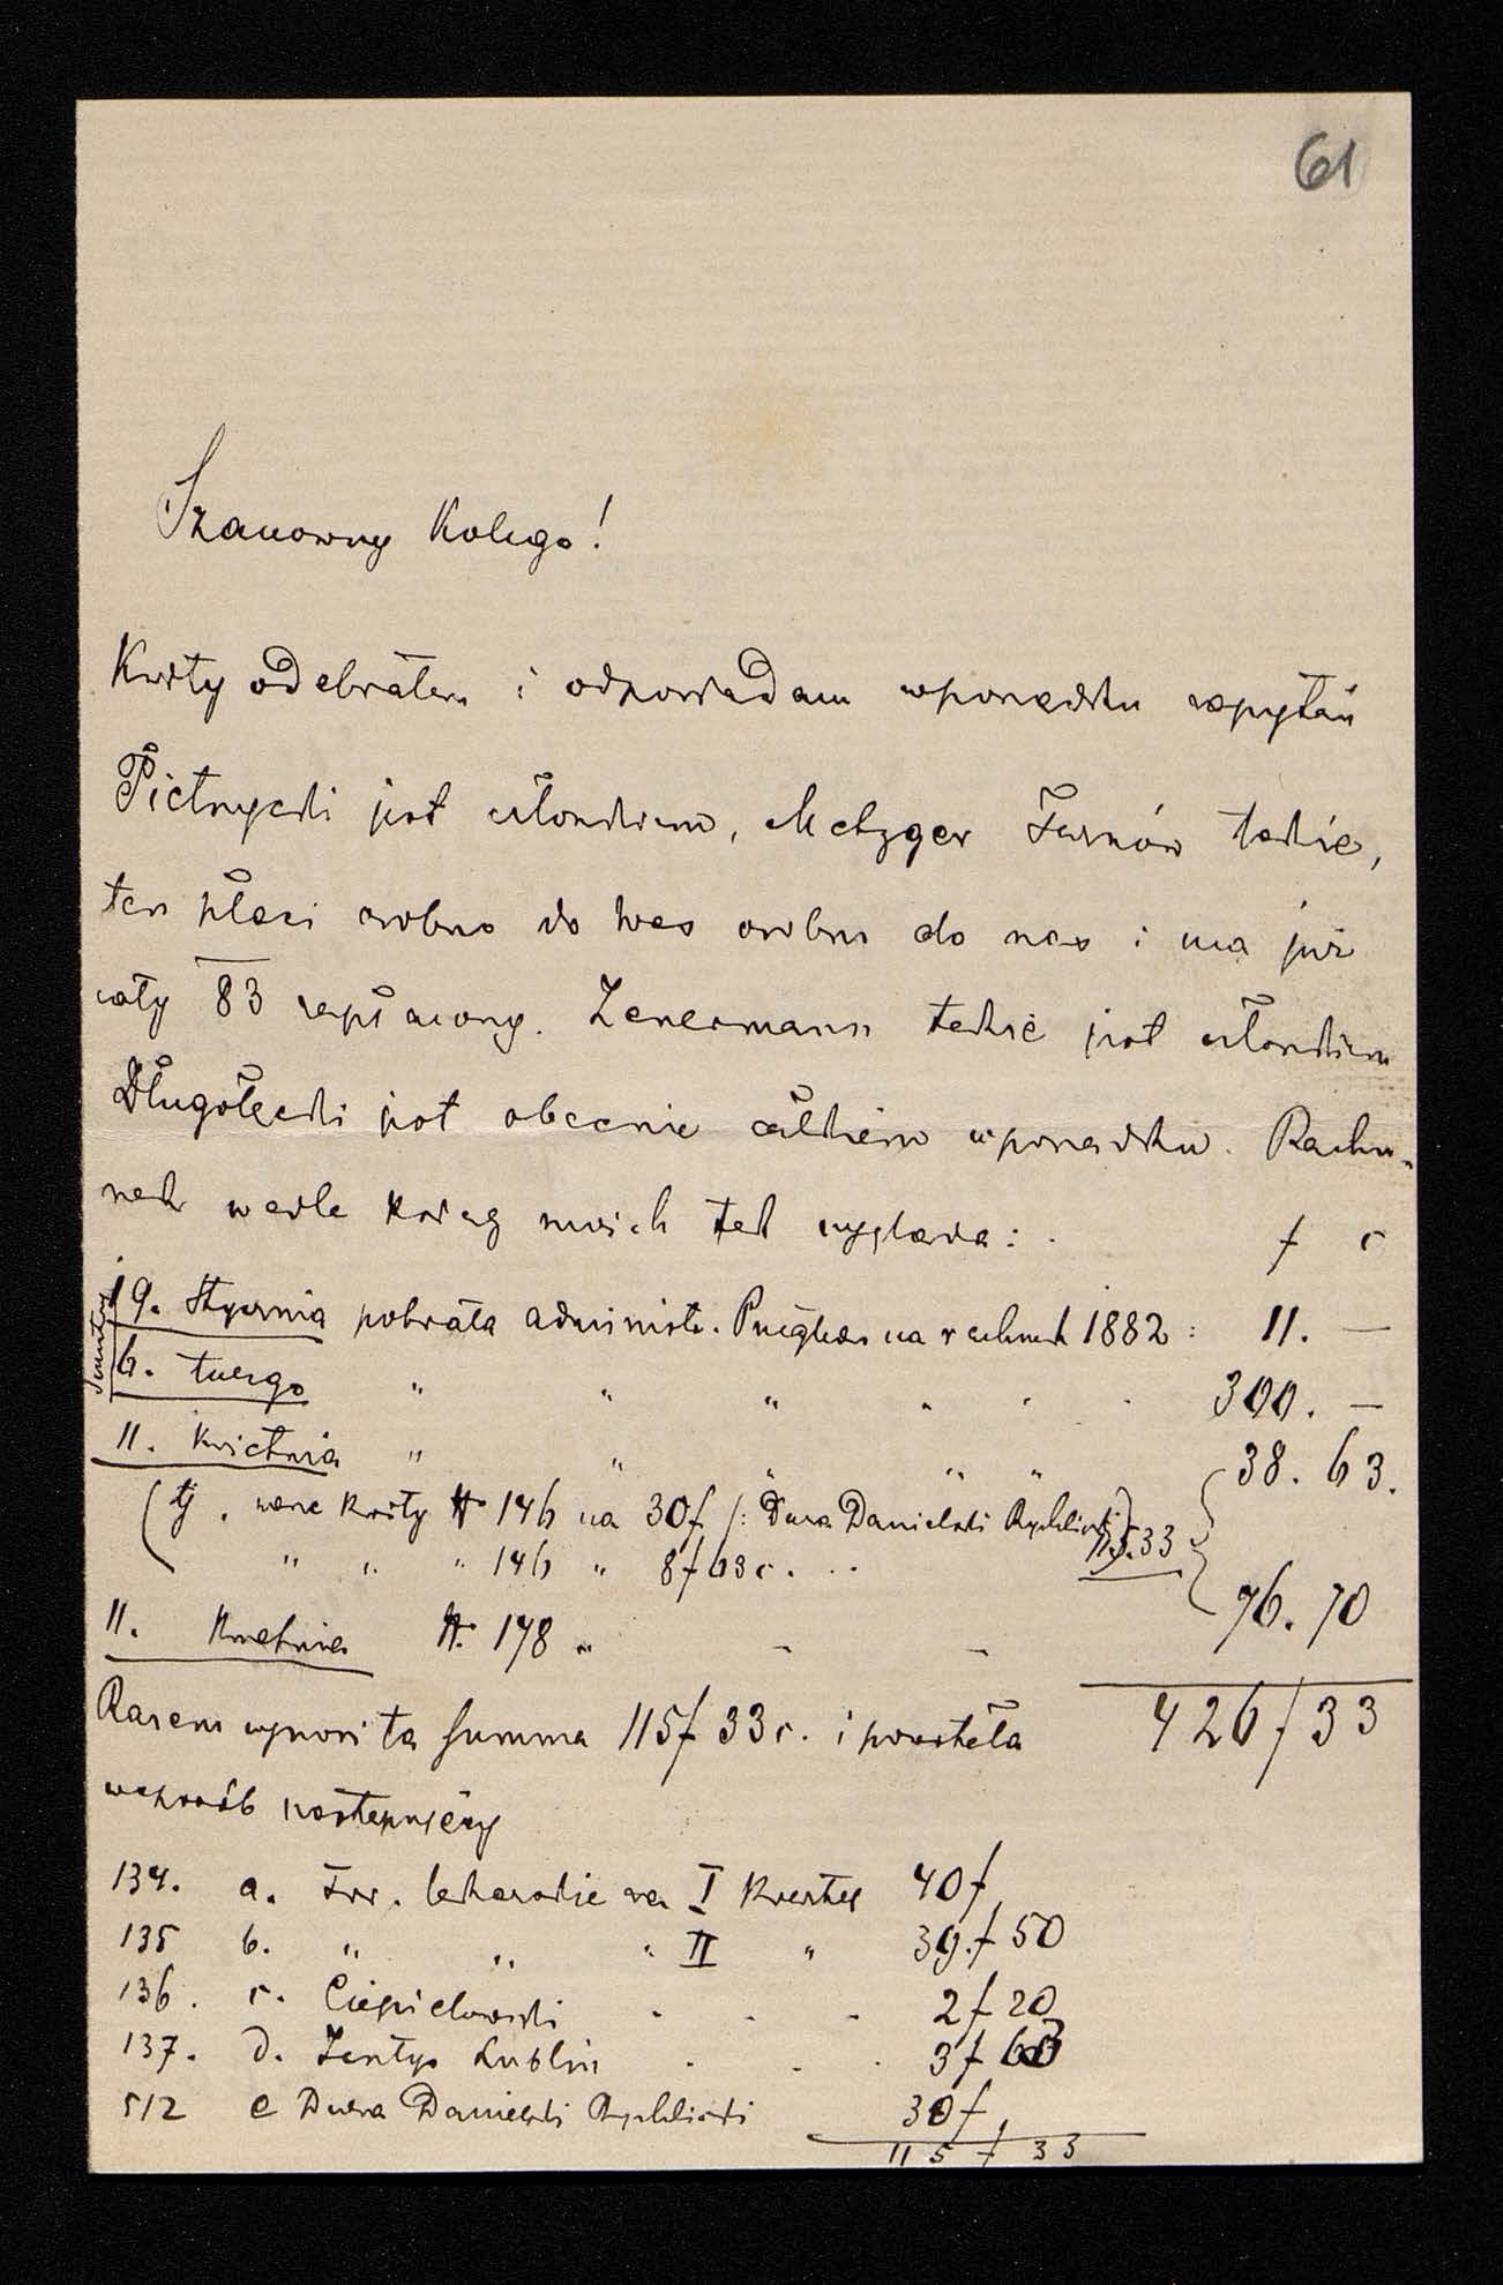 61
Szanowny Kolego!
Kwity odebrałem i odpowiadam w porządku zapytań
Pietrzycki jest członkiem, Metzger Tarnów także,
ten płaci osobno do Was osobno do nas i ma już
cały 83 zapłacony. Zenermann także jest członkiem
Długołęcki jest obecnie całkiem w porządku. Rachu-
nek wedle ksiąg moich tak wygląda: f c
19. Stycznia pobrała administr. Przeglądu na rachunek 1882: 11. —
6. lutego " " " " 300. —
11. Kwietnia " " " " " 38. 63.
(tj. wasze kwity № 146 na 30f /: Duża Danielski Rychlicki
" " " 146 " 8f 63c. 115.33
11. Kwietnia №. 178 " 76. 70
Razem wynosi ta summa 115f 33c. i powstała 426f33
w sposób następujący
134. a. Tow. lekarskie za I kwartał 40f
135 b. " " " II " 39.f 50
136. c. Ciepielowski 2f 20
137. d. Zentys Lublin 3f 63
512 e Duża Danielski Rychlicki 30f
115 f 33